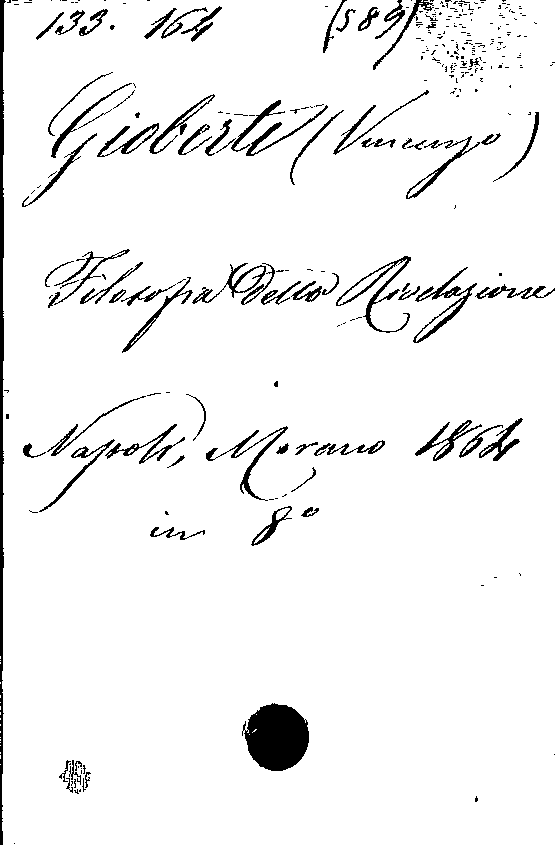 133. 164 (589)
Gioberti (Vincenzo)
Filosofia Della Rivelazione
Napoli, Morano 1864
in 8°